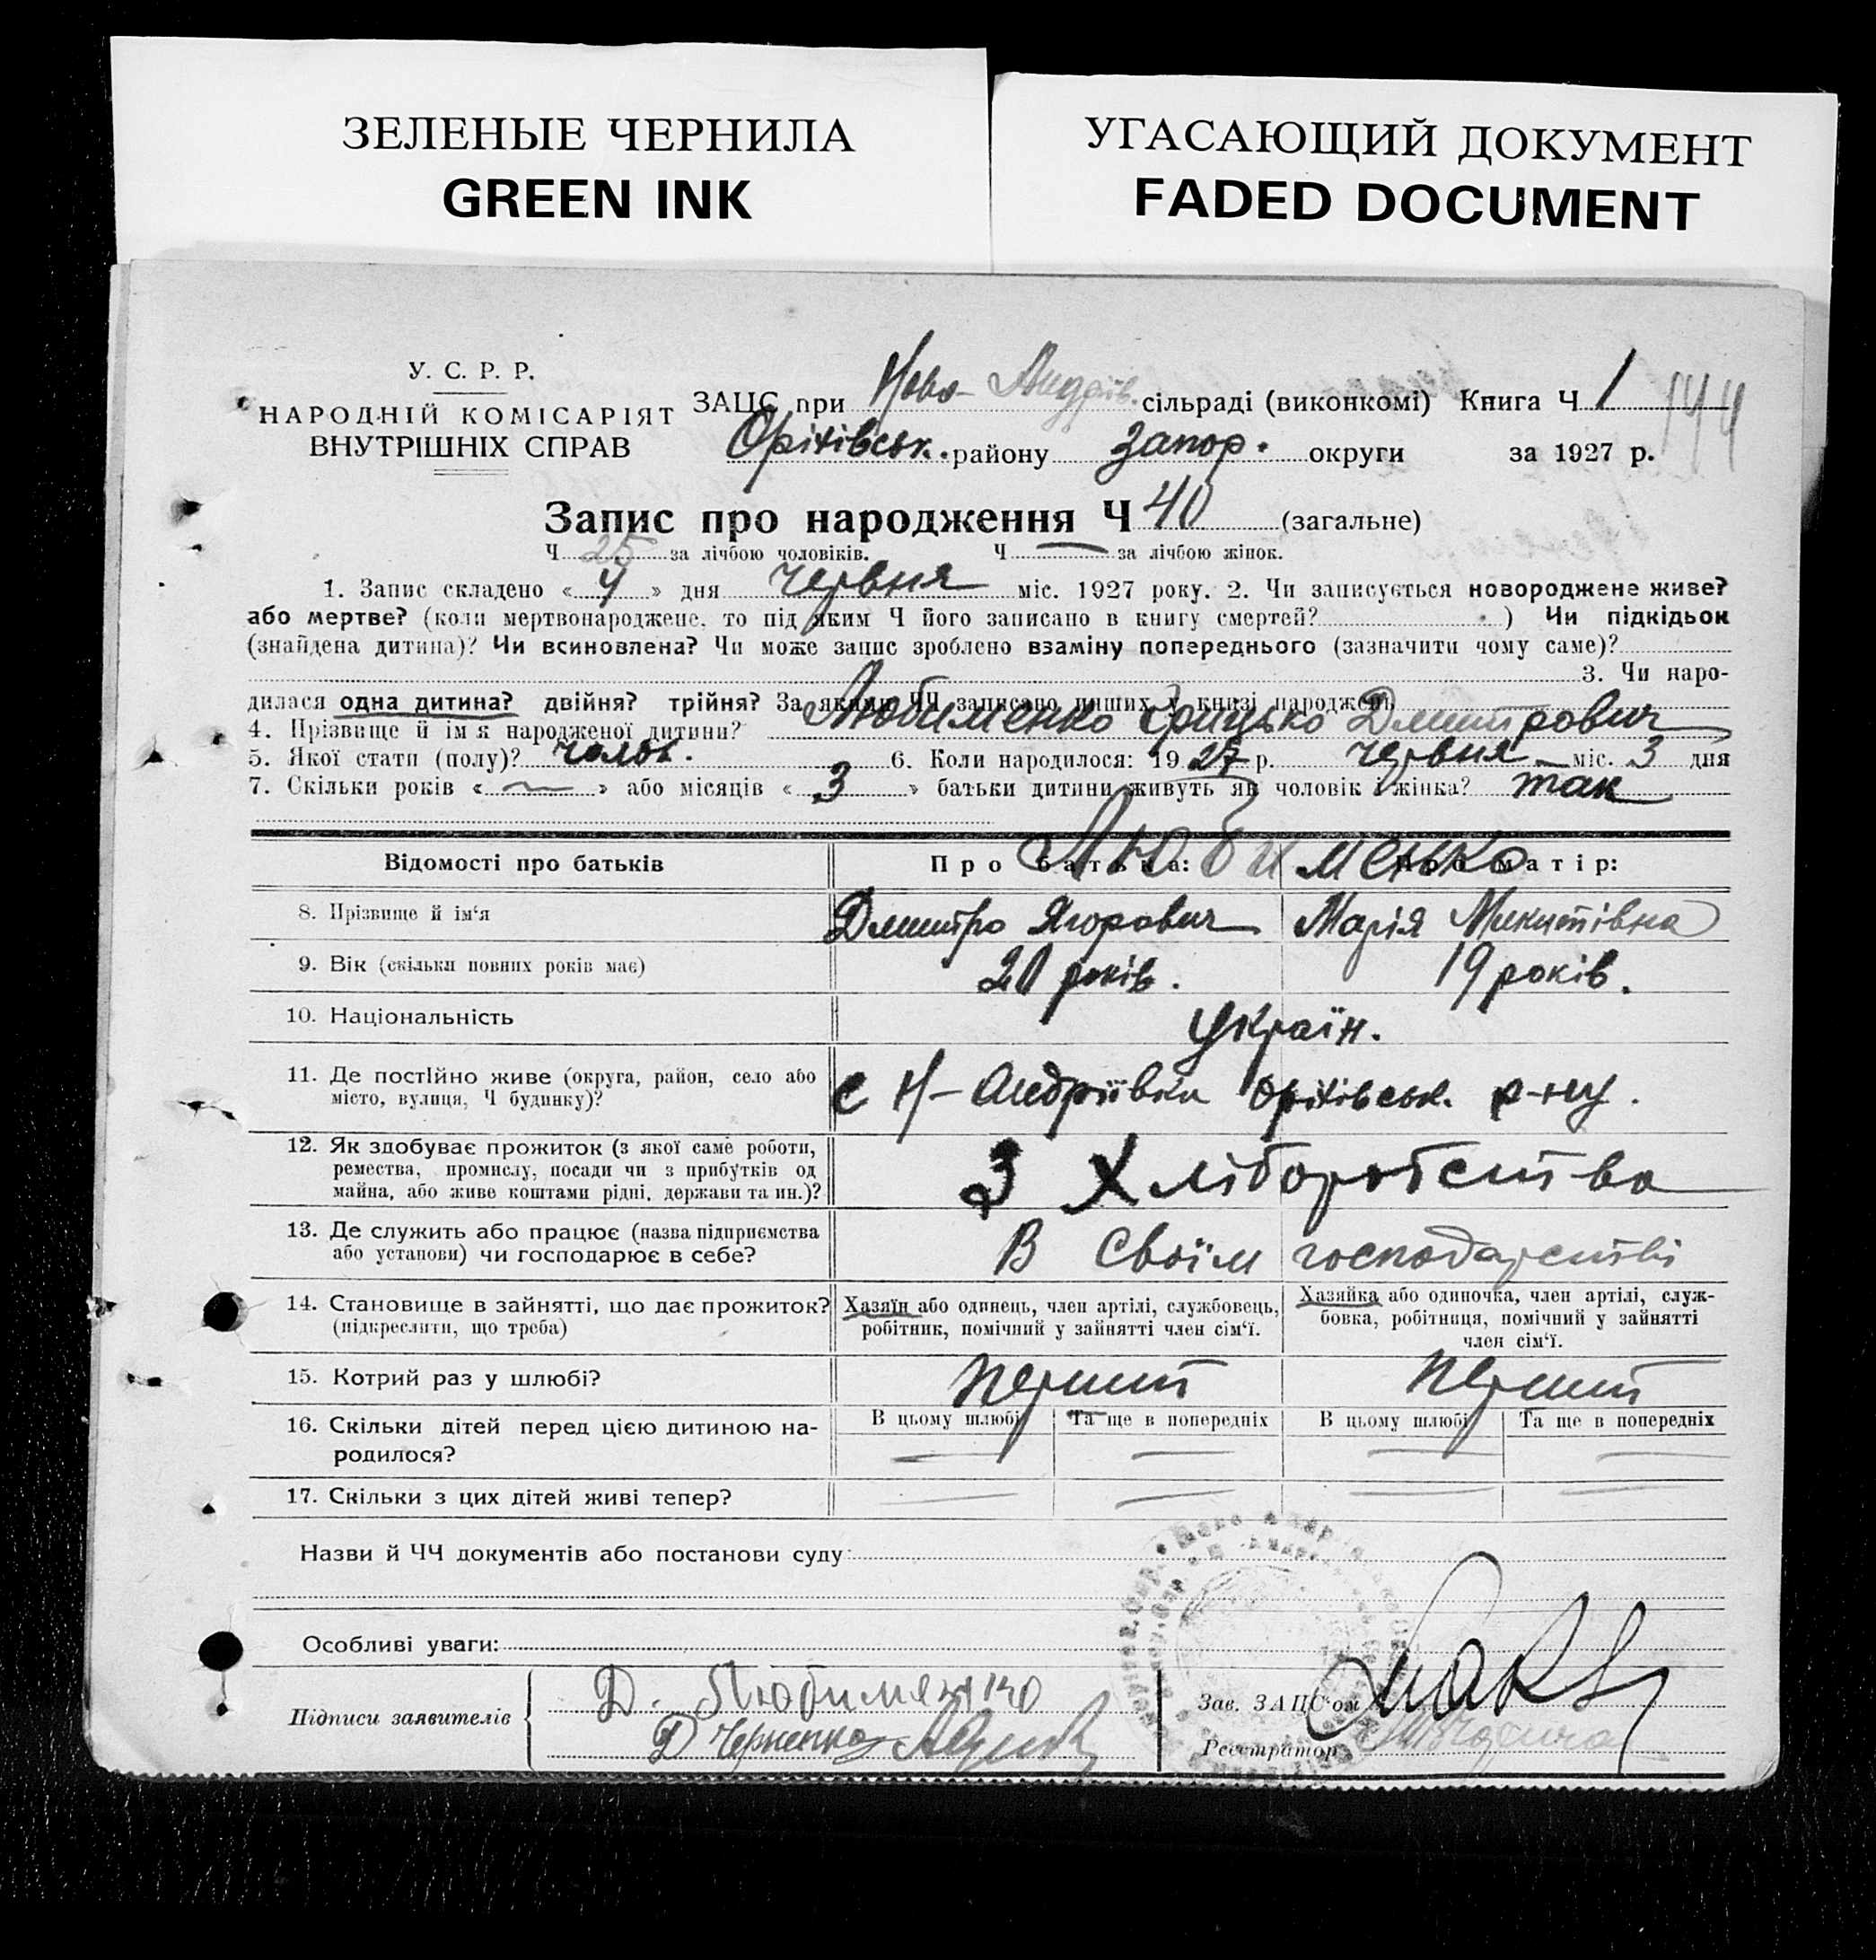 ЗЕЛЕНЫЕ ЧЕРНИЛА
GREEN INK
УГАСАЮЩИЙ ДОКУМЕНТ
FADED DOCUMENT
У. С. Р. Р.
НАРОДНІЙ КОМІСАРІЯТ
ВНУТРІШНІХ СПРАВ
ЗАЦС при Ново-Андріїв. сільраді (виконкомі) Книга Ч 1 144
Оріхівськ. району Запор. округи за 1927 р.
Запис про народження Ч 40 (загальне)
Ч 25 за лічбою чоловіків. Ч — за лічбою жінок.
1. Запис складено « 4 » дня червня міс. 1927 року. 2. Чи записується новороджене живе?
або мертве? (коли мертвонароджене, то під яким Ч його записано в книгу смертей? ) Чи підкідьок
(знайдена дитина)? Чи всиновлена? Чи може запис зроблено взаміну попереднього (зазначити чому саме)?
3. Чи наро-
дилася одна дитина? двійня? трійня? За якими ЧЧ записано инших у книзі народжень
4. Прізвище й ім'я народженої дитини? Любименко Грицько Дмитрович
5. Якої стати (полу)? чолов. 6. Коли народилося: 1927 р. червня міс. 3 дня
7. Скільки років « — » або місяців « 3 » батьки дитини живуть як чоловік і жінка? так
Відомості про батьків Про батька: Про матір:
Любименко
8. Прізвище й ім'я Дмитро Ягорович Марія Микитівна
9. Вік (скільки повних років має) 20 років. 19 років.
10. Національність Україн.
11. Де постійно живе (округа, район, село або
місто, вулиця, Ч будинку)? с Н-Андріївки Оріхівськ. р-ну.
12. Як здобуває прожиток (з якої саме роботи,
ремества, промислу, посади чи з прибутків од
майна, або живе коштами рідні, держави та ин.)? З Хліборобства
13. Де служить або працює (назва підприємства
або установи) чи господарює в себе? В Своїм господарстві
14. Становище в зайнятті, що дає прожиток?
(підкреслити, що треба)
Хазяїн або одинець, член артілі, службовець,
робітник, помічний у зайнятті член сім'ї.
Хазяйка або одиночка, член артілі, служ-
бовка, робітниця, помічний у зайнятті
член сім'ї.
15. Котрий раз у шлюбі? перший перший
16. Скільки дітей перед цією дитиною на-
родилося?
В цьому шлюбі Та ще в попередніх В цьому шлюбі Та ще в попередніх
— — — —
17. Скільки з цих дітей живі тепер? — — — —
Назви й ЧЧ документів або постанови суду
Особливі уваги:
Підписи заявителів
Д. Любименко
Д Черненко
Зав. ЗАЦС'ом
Реєстратор